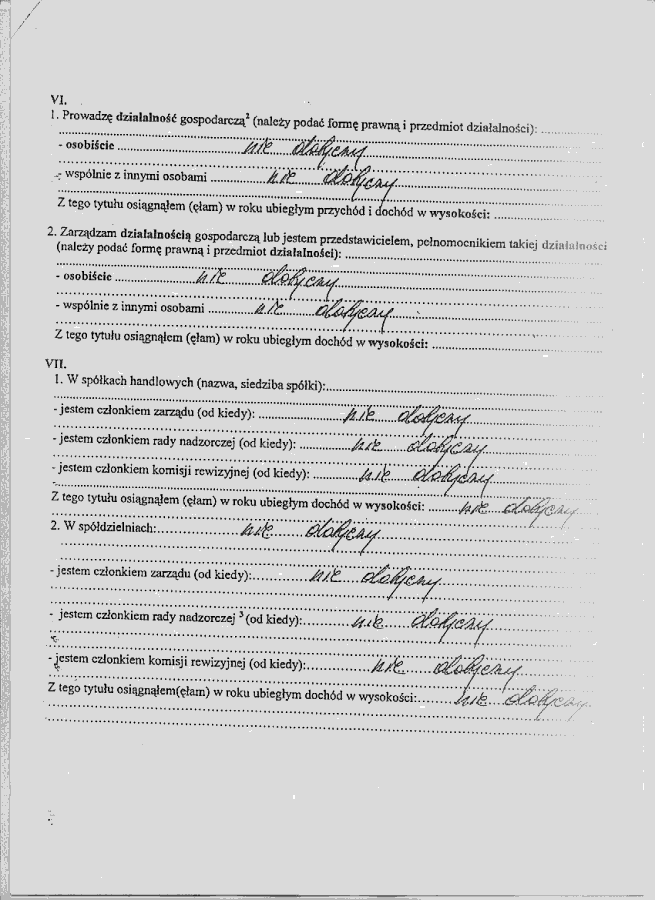 VI.
1. Prowadzę działalność gospodarczą² (należy podać formę prawną i przedmiot działalności): ........
........
- osobiście ........ nie dotyczy ........
........
- wspólnie z innymi osobami ........ nie dotyczy ........
........
Z tego tytułu osiągnąłem (ęłam) w roku ubiegłym przychód i dochód w wysokości: ........
........
2. Zarządzam działalnością gospodarczą lub jestem przedstawicielem, pełnomocnikiem takiej działalności
(należy podać formę prawną i przedmiot działalności): ........
........
- osobiście ........ nie dotyczy ........
........
- wspólnie z innymi osobami ........ nie dotyczy ........
........
Z tego tytułu osiągnąłem (ęłam) w roku ubiegłym dochód w wysokości: ........
........
VII.
1. W spółkach handlowych (nazwa, siedziba spółki):........
........
- jestem członkiem zarządu (od kiedy): ........ nie dotyczy ........
........
- jestem członkiem rady nadzorczej (od kiedy): ........ nie dotyczy ........
........
- jestem członkiem komisji rewizyjnej (od kiedy): ........ nie dotyczy ........
........
Z tego tytułu osiągnąłem (ęłam) w roku ubiegłym dochód w wysokości: ........ nie dotyczy
........
2. W spółdzielniach:........ nie dotyczy ........
........
........
- jestem członkiem zarządu (od kiedy):........ nie dotyczy ........
........
........
- jestem członkiem rady nadzorczej ³ (od kiedy):........ nie dotyczy ........
........
........
- jestem członkiem komisji rewizyjnej (od kiedy):........ nie dotyczy ........
........
Z tego tytułu osiągnąłem(ęłam) w roku ubiegłym dochód w wysokości:........ nie dotyczy
........
........